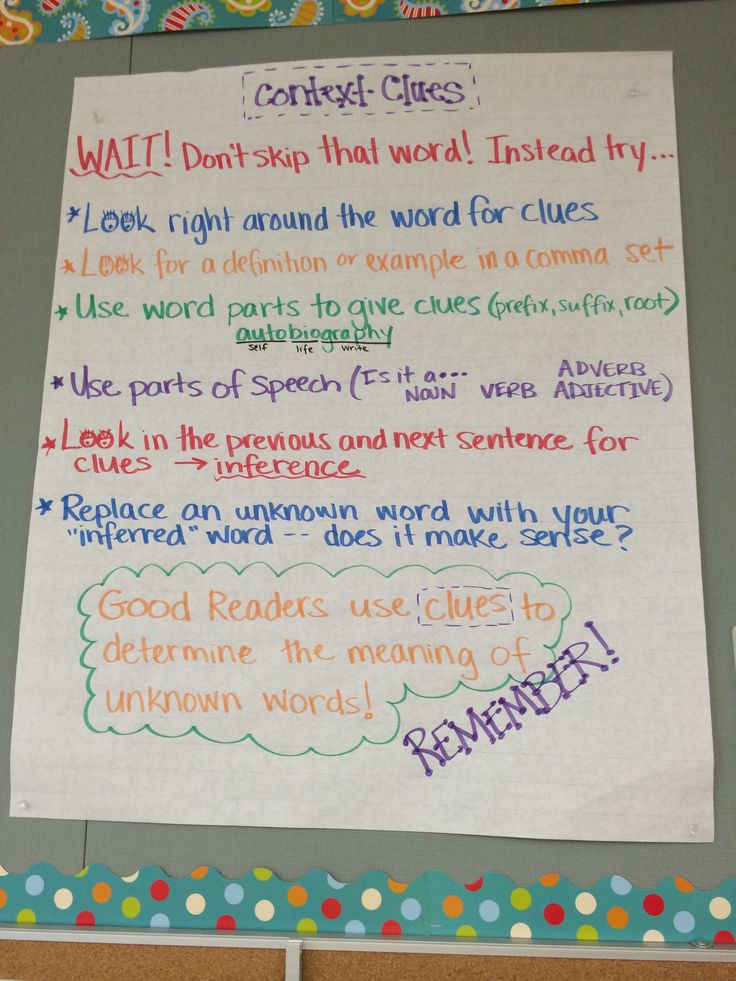 Context Clues
WAIT! Don't skip that word! Instead try...
* Look right around the word for clues
* Look for a definition or example in a comma set
* Use word parts to give clues (prefix, suffix, root)
autobiography
self life write
* Use parts of speech (Is it a... NOUN VERB ADVERB ADJECTIVE)
* Look in the previous and next sentence for
clues → inference
* Replace an unknown word with your
"inferred" word -- does it make sense?
Good Readers use clues to
determine the meaning of
unknown words!
REMEMBER!